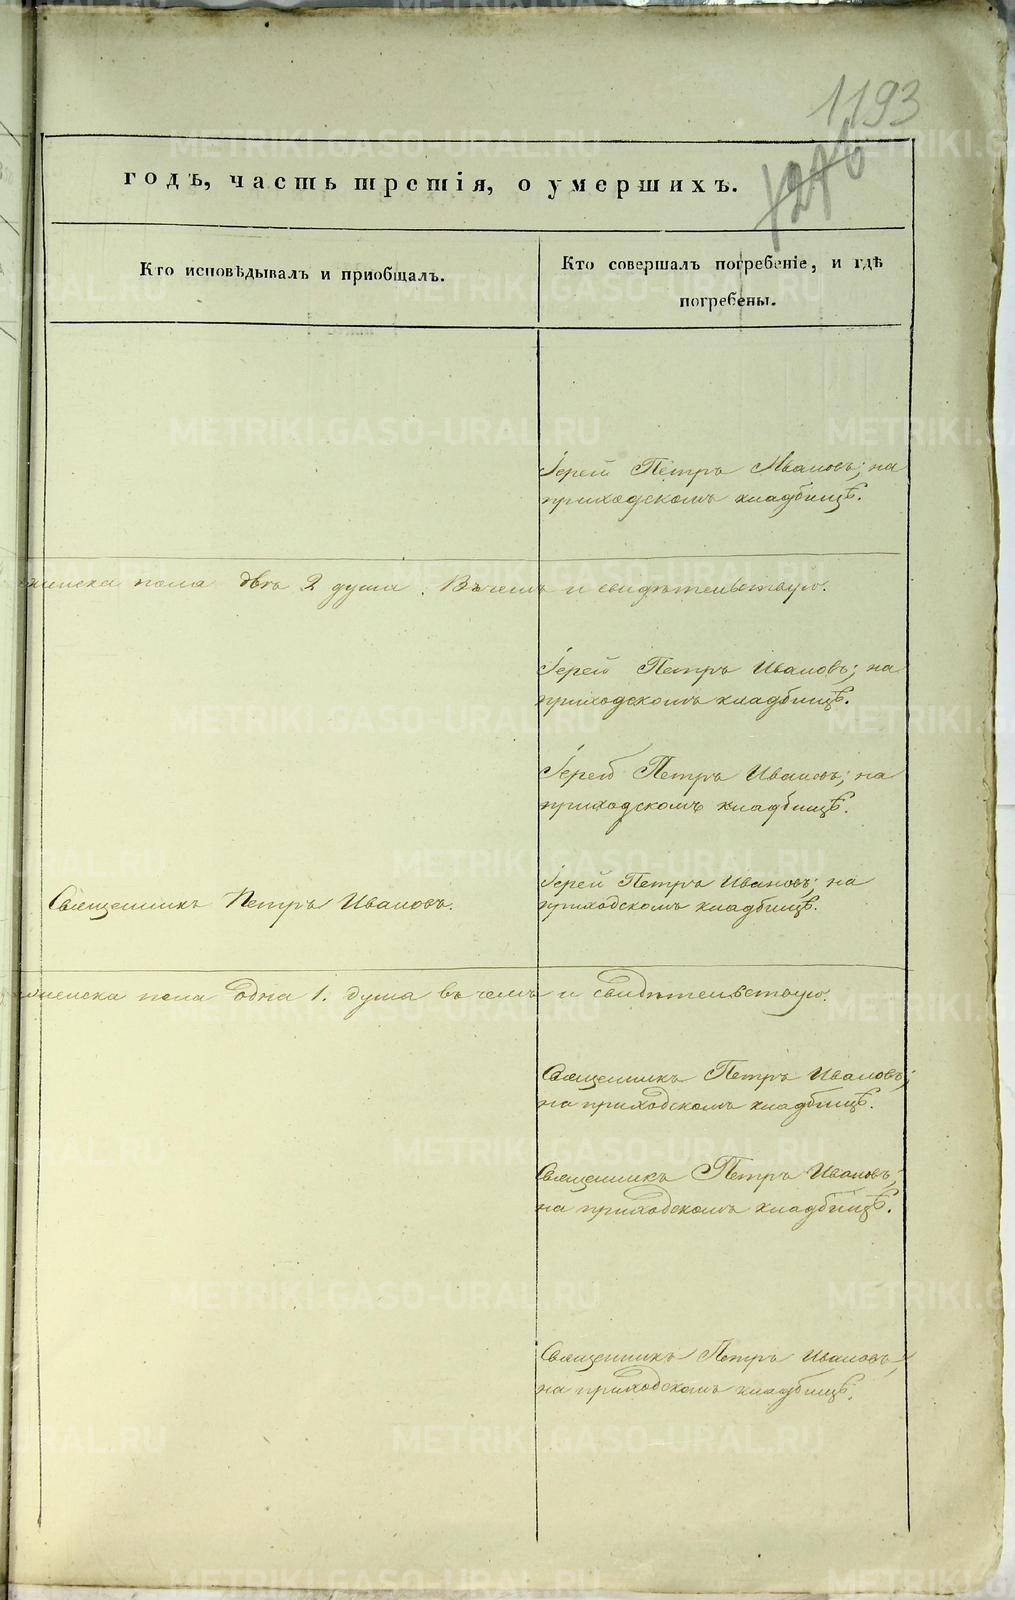 1193
1276
годъ, часть третія, о умершихъ.
Кто исповѣдывалъ и пріобщалъ.
Кто совершалъ погребеніе, и гдѣ
погребены.
Іерей Петръ Ивановъ; на
приходскомъ кладбищѣ.
женска пола двѣ 2 души. Въ чемъ и свидѣтельствую.
Іерей Петръ Ивановъ; на
приходскомъ кладбищѣ.
Іерей Петръ Ивановъ; на
приходскомъ кладбищѣ.
Священникъ Петръ Ивановъ.
Іерей Петръ Ивановъ; на
приходскомъ кладбищѣ.
женска пола одна 1. душа въ чемъ и свидѣтельствую.
Священникъ Петръ Ивановъ;
на приходскомъ кладбищѣ.
Священникъ Петръ Ивановъ;
на приходскомъ кладбищѣ.
Священникъ Петръ Ивановъ;
на приходскомъ кладбищѣ.
METRIKI.GASO-URAL.RU